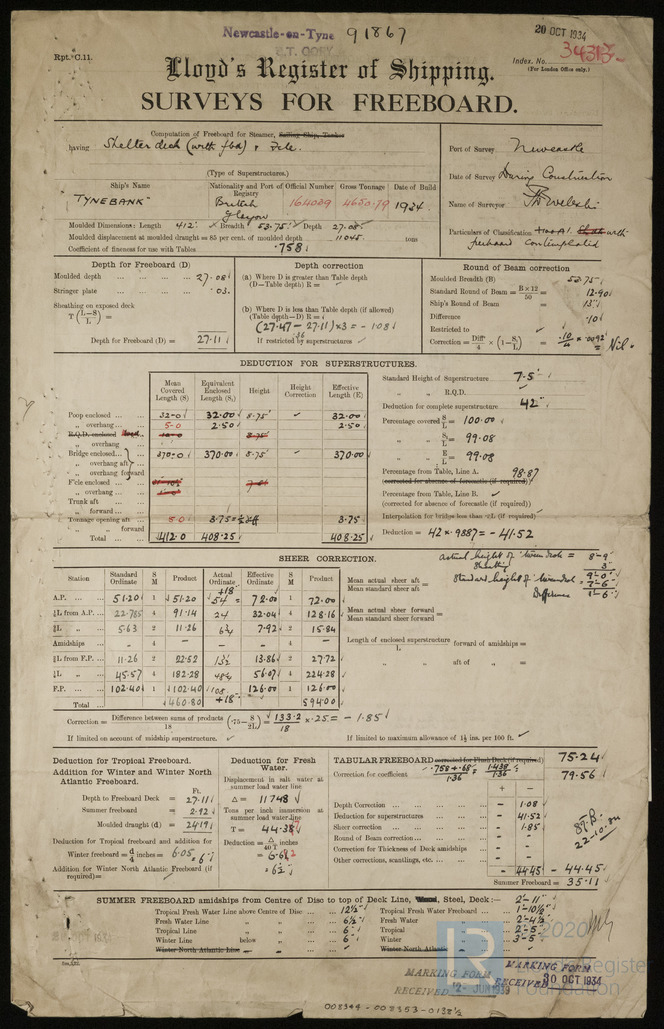 Newcastle-on-Tyne 91867
20 OCT 1934
Rpt. C.11.
Index. No. 34313
(For London Office only.)
Lloyd's Register of Shipping.
SURVEYS FOR FREEBOARD.
Computation of Freeboard for Steamer, Sailing Ship, Tanker
having Shelter deck (with fbd) & Fcle.
(Type of Superstructures.)
Port of Survey Newcastle
Date of Survey During Construction
Name of Surveyor
Particulars of Classification +100A1. with
freeboard contemplated
Ship's Name Nationality and Port of Registry Official Number Gross Tonnage Date of Build
"TYNEBANK" British Glasgow 164009 4650.79 1934
Moulded Dimensions: Length 412' Breadth 53.75' Depth 27.08'
Moulded displacement at moulded draught = 85 per cent. of moulded depth 11045 tons
Coefficient of fineness for use with Tables .758
Depth for Freeboard (D)
Moulded depth 27.08
Stringer plate .03
Sheathing on exposed deck
T (L–S/L) =
Depth for Freeboard (D) = 27.11
Depth correction
(a) Where D is greater than Table depth
(D—Table depth) R =
(b) Where D is less than Table depth (if allowed)
(Table depth—D) R =
(27.47 - 27.11) × 3 = - 1.08
.36
If restricted by superstructures
Round of Beam correction
Moulded Breadth (B) 53.75'
Standard Round of Beam = B×12/50 = 12.90
Ship's Round of Beam = 13"
Difference .10
Restricted to
Correction = Diff/4 × (1–S/L) = .10/4 × .0092 = Nil.
DEDUCTION FOR SUPERSTRUCTURES.
Mean Covered Length (S) Equivalent Enclosed Length (S₁) Height Height Correction Effective Length (E)
Poop enclosed 32.0 32.00 8.75' 32.00
„ overhang 5.0 2.50 2.50
R.Q.D. enclosed
„ overhang
Bridge enclosed 370.0 370.00 8.75' 370.00
„ overhang aft
„ overhang forward
F'cle enclosed
„ overhang
Trunk aft
„ forward
Tonnage opening aft 5.0 3.75 3.75
„ „ forward
Total 412.0 408.25 408.25
Standard Height of Superstructure 7.5'
„ „ R.Q.D.
Deduction for complete superstructure 42"
Percentage covered S/L = 100.00
„ „ S₁/L = 99.08
„ „ E/L = 99.08
Percentage from Table, Line A. 98.87
(corrected for absence of forecastle (if required))
Percentage from Table, Line B.
(corrected for absence of forecastle (if required))
Interpolation for bridge less than .2L (if required)
Deduction = 42 × .9887 = - 41.52
SHEER CORRECTION.
Station Standard Ordinate S M Product Actual Ordinate Effective Ordinate S M Product
A.P. 51.20 1 51.20 +18 54 72.00 1 72.00
¼L from A.P. 22.785 4 91.14 24 32.04 4 128.16
⅓L „ 5.63 2 11.26 6¼ 7.92 2 15.84
Amidships - 4 - - - 4 -
⅓L from F.P. 11.26 2 22.52 13½ 13.86 2 27.72
¼L „ 45.57 4 182.28 56.07 4 224.28
F.P. 102.40 1 102.40 108 126.00 1 126.00
Total 460.80 +18 594.00
Actual height of 'tween deck = 8'-9"
Sheathing 3"
9'-0"
Standard height of 'tween deck = 7'-6"
Difference 1'-6"
Mean actual sheer aft / Mean standard sheer aft =
Mean actual sheer forward / Mean standard sheer forward =
Length of enclosed superstructure / L forward of amidships =
„ „ aft of „ =
Correction = Difference between sums of products / 18 (.75 – S/2L) = 133.2/18 × .25 = - 1.85
If limited on account of midship superstructure.
If limited to maximum allowance of 1½ ins. per 100 ft.
Deduction for Tropical Freeboard.
Addition for Winter and Winter North Atlantic Freeboard.
Ft.
Depth to Freeboard Deck = 27.11
Summer freeboard = 2.92
Moulded draught (d) = 24.19
Deduction for Tropical freeboard and addition for
Winter freeboard = d/4 inches = 6.05 = 6"
Addition for Winter North Atlantic Freeboard (if required) =
Deduction for Fresh Water.
Displacement in salt water at summer load water line
Δ = 11748
Tons per inch immersion at summer load water line
T = 44.38
Deduction = Δ/40T inches
= 6.62
= 6½"
TABULAR FREEBOARD corrected for Flush Deck (if required) 75.24
Correction for coefficient .758+.68/1.36 = 1.438/1.36 79.56
+ –
Depth Correction - 1.08
Deduction for superstructures - 41.52
Sheer correction - 1.85
Round of Beam correction - -
Correction for Thickness of Deck amidships - -
Other corrections, scantlings, etc. - -
- 44.45 - 44.45
Summer Freeboard = 35.11
22-10-34
SUMMER FREEBOARD amidships from Centre of Disc to top of Deck Line, Wood, Steel, Deck:— 2'-11"
Tropical Fresh Water Line above Centre of Disc 12½" Tropical Fresh Water Freeboard 1'-10½"
Fresh Water Line „ „ 6½" Fresh Water „ 2'-4½"
Tropical Line „ „ 6" Tropical „ 2'-5"
Winter Line below „ 6" Winter „ 3'-5"
Winter North Atlantic Line „ „ - Winter North Atlantic „ -
MARKING FORM
RECEIVED 12 - JUN 1935
MARKING FORM
RECEIVED 30 OCT 1934
LR
© 2020
Lloyd's Register
Foundation
008344-008353-0132½